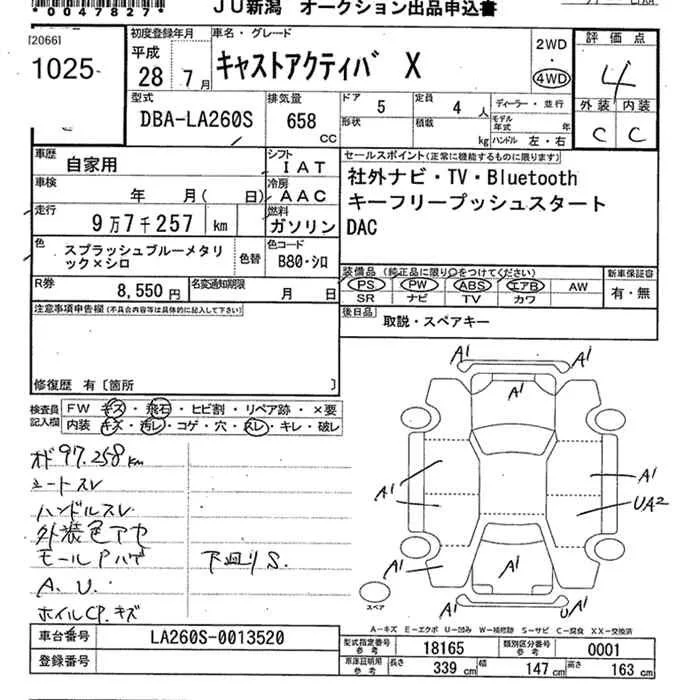 *0047827*
JU新潟 オークション出品申込書
[20661
1025
初度登録年月
平成
28 7月
車名・グレード
キャストアクティバ X
2WD
・
4WD
評価点
4
外装 内装
C C
型式
DBA-LA260S
排気量
658
CC
ドア 5
形状
定員 4 人
積載 kg
ディーラー・並行
モデル年式 年
ハンドル 左・右
車歴 自家用
シフト IAT
車検 年 月( 日)
冷房 AAC
走行 9万7千257 km
燃料 ガソリン
色 スプラッシュブルーメタリック×シロ
色替
色コード
B80・シロ
R券 8,550円
名変通知期限 月 日
セールスポイント(正常に機能するものに限ります)
社外ナビ・TV・Bluetooth
キーフリープッシュスタート
DAC
装備品(純正品に限り○をつけてください)
PS PW ABS エアB AW
SR ナビ TV カワ
新車保証書
有・無
後日品 取説・スペアキー
注意事項申告欄(不具合内容等は具体的に記入して下さい)
修復歴 有〔箇所 〕
検査員記入欄
FW キズ・飛石・ヒビ割・リペア跡・×要
内装 キズ・汚レ・コゲ・穴・スレ・キレ・破レ
オド 97.258km
シートスレ
ハンドルスレ
外装色アセ
モールPハゲ
下廻りS.
A.U.
ホイルCP.キズ
A1 A1
A1
A1 A1
UA2
A1
A1 A1
A1 UA1
スペア
A－キズ E－エクボ U－凹み W－補修跡 S－サビ C－腐食 XX－交換済
車台番号 LA260S-0013520
登録番号
型式指定番号 参考 18165
類別区分番号 参考 0001
車庫証明用 参考 長さ 339 cm 幅 147 cm 高さ 163 cm